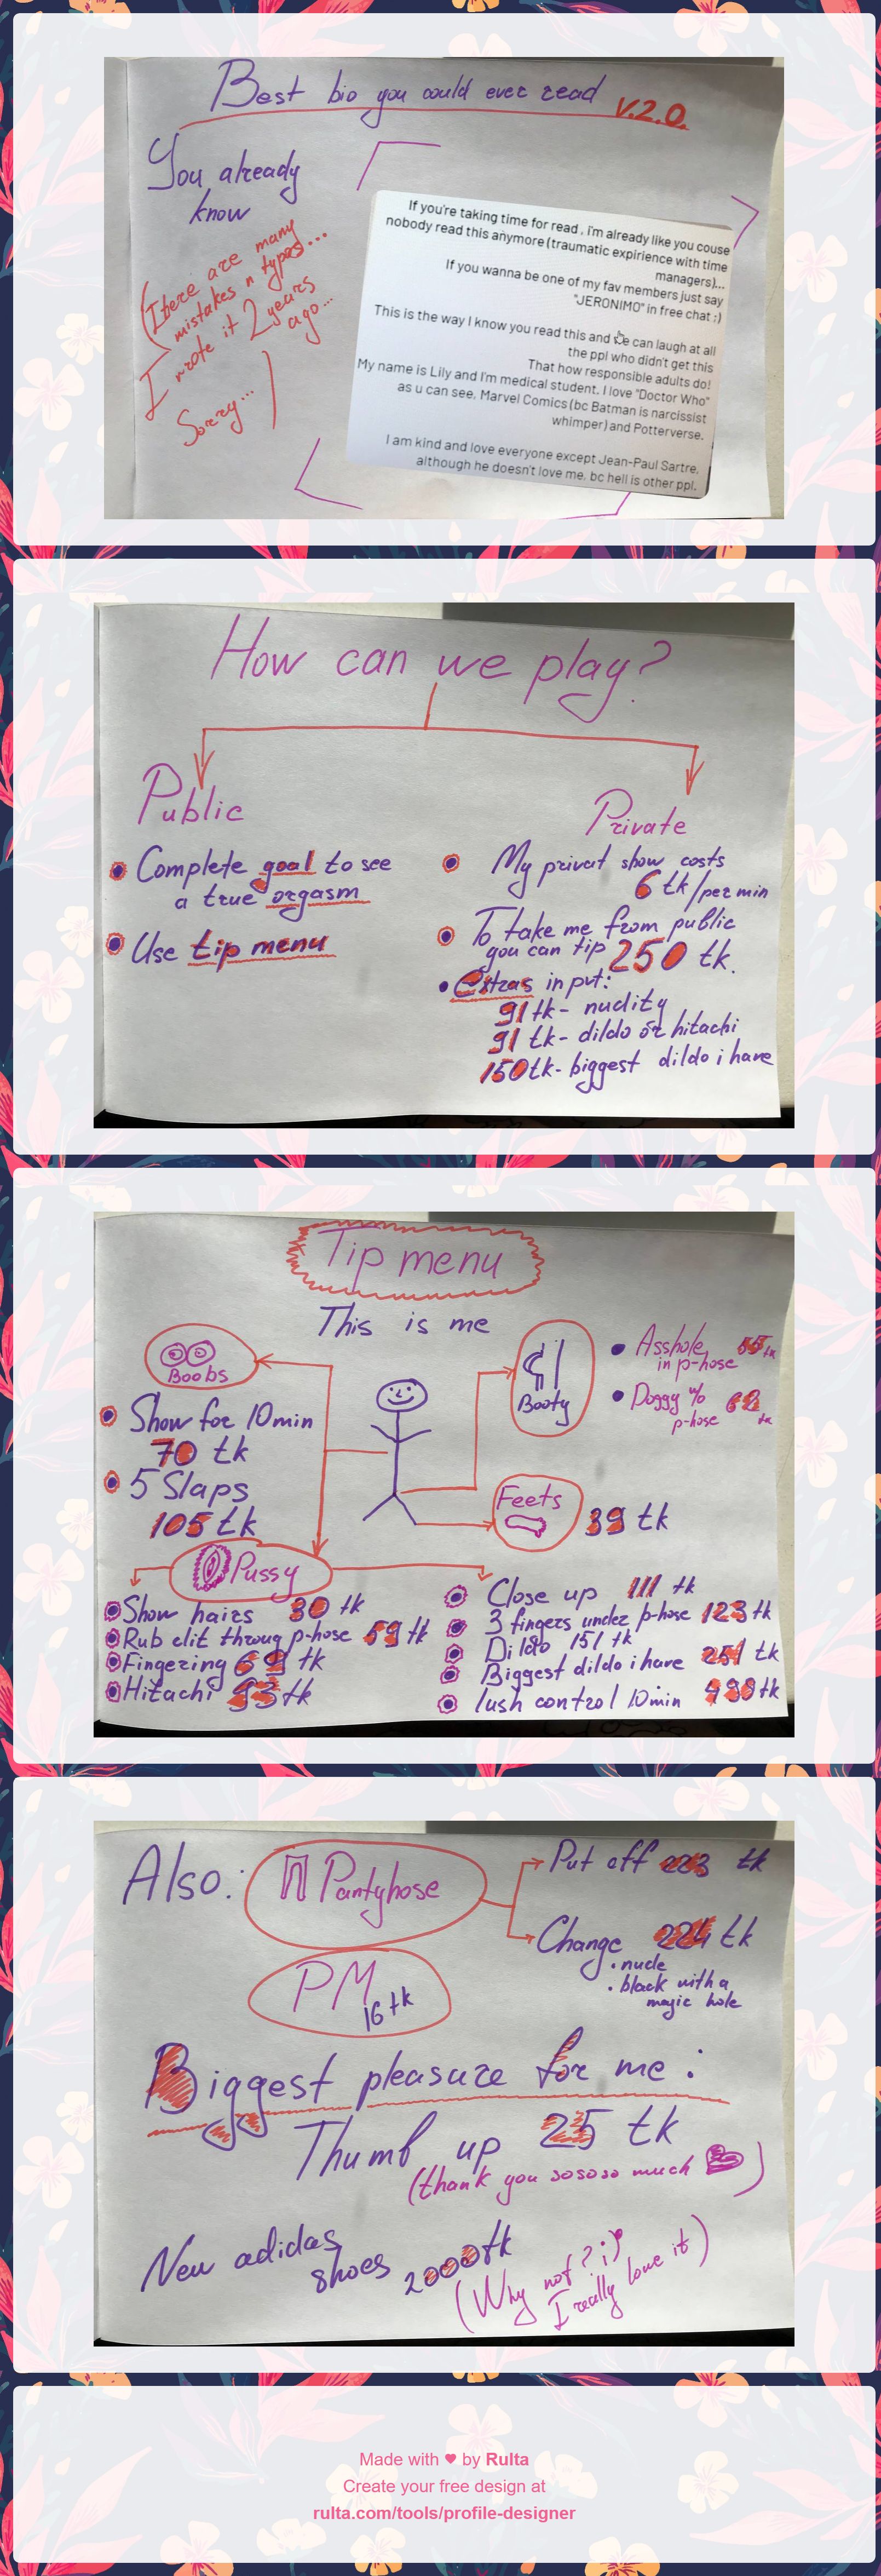 Best bio you could ever read V.2.0.
You already
know
(there are many
mistakes n typos...
I wrote it 2 years
ago...
Sorry... )
If you're taking time for read , i'm already like you couse
nobody read this anymore (traumatic expirience with time
managers)...
If you wanna be one of my fav members just say
"JERONIMO" in free chat ;)
This is the way I know you read this and we can laugh at all
the ppl who didn't get this
That how responsible adults do!
My name is Lily and I'm medical student. I love "Doctor Who"
as u can see, Marvel Comics (bc Batman is narcissist
whimper) and Potterverse.
I am kind and love everyone except Jean-Paul Sartre,
although he doesn't love me, bc hell is other ppl.
How can we play?
Public
Complete goal to see
a true orgasm
Use tip menu
Private
My privat show costs
6 tk/per min
To take me from public
you can tip 250 tk.
Extras in pvt:
91 tk - nudity
91 tk - dildo or hitachi
150 tk - biggest dildo i have
Tip menu
This is me
Boobs
Show for 10 min
70 tk
5 Slaps
105 tk
Booty
Asshole 55 tk
in p-hose
Doggy w/o 62 tk
p-hose
Feets 39 tk
Pussy
Show hairs 30 tk
Rub clit throug p-hose 59 tk
Fingering 69 tk
Hitachi 93 tk
Close up 111 tk
3 fingers under p-hose 123 tk
Dildo 151 tk
Biggest dildo i have 251 tk
lush control 10min 499 tk
Also:
Pantyhose
Put off 223 tk
Change 224 tk
• nude
• black with a
magic hole
PM
16 tk
Biggest pleasure for me :
Thumb up 25 tk
(thank you sososo much )
New adidas
shoes 2000tk
(Why not? ;)
I really love it)
Made with ♥ by Rulta
Create your free design at
rulta.com/tools/profile-designer